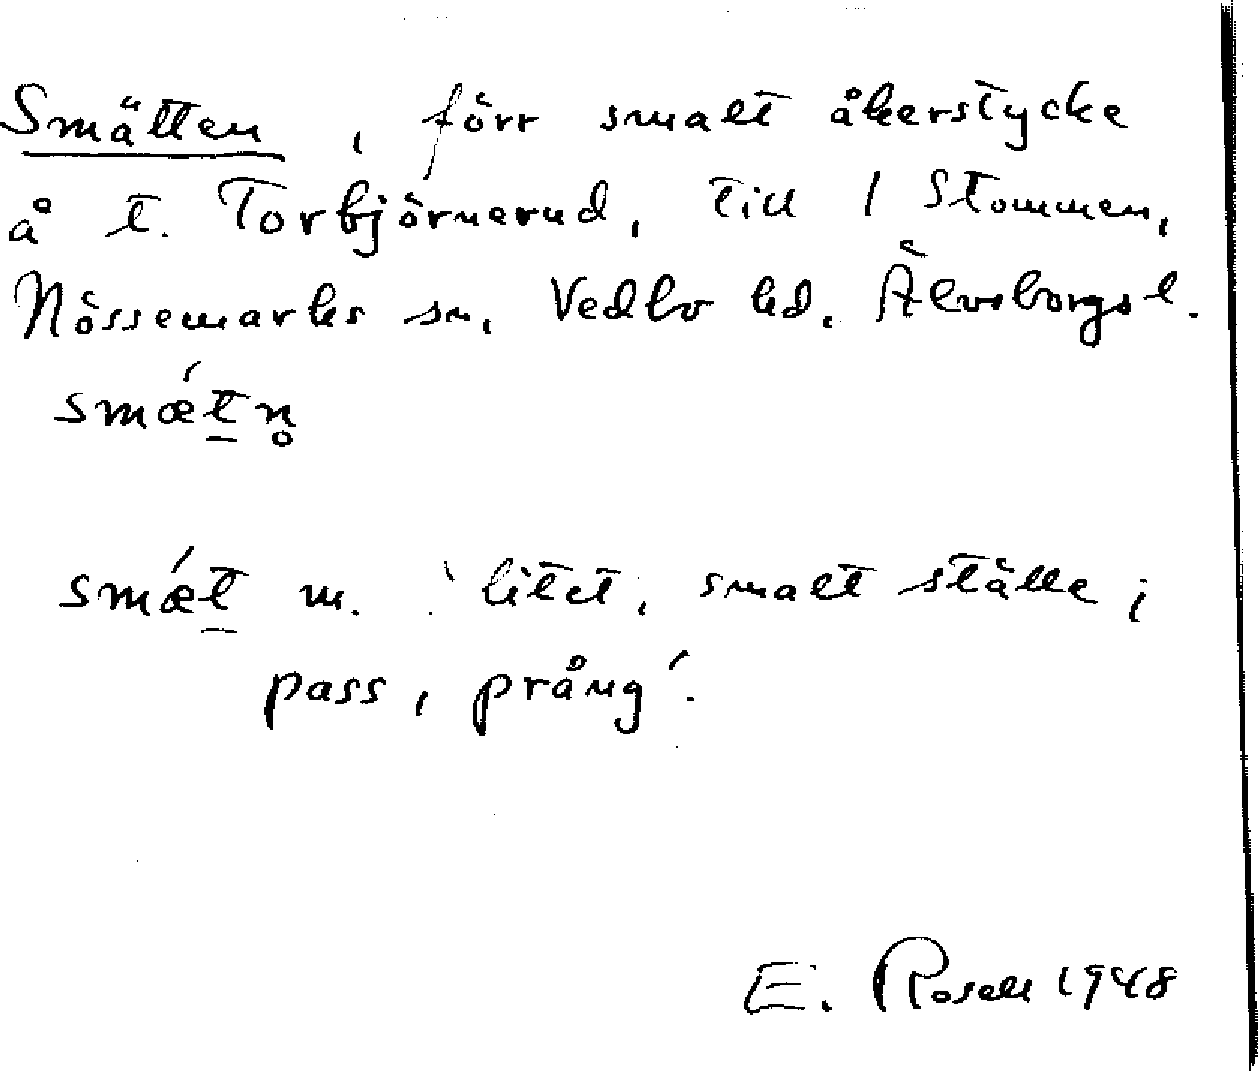 Smätten, förr smalt åkerstycke
å t. Torbjörnerud, till 1 Stommen,
Nössemarks sn. Vedbo hd. Älvsborgs l.
smǽt̠n̥
smǽt̠ m. 'litet, smalt ställe;
pass, prång'.
E. Rosell 1948